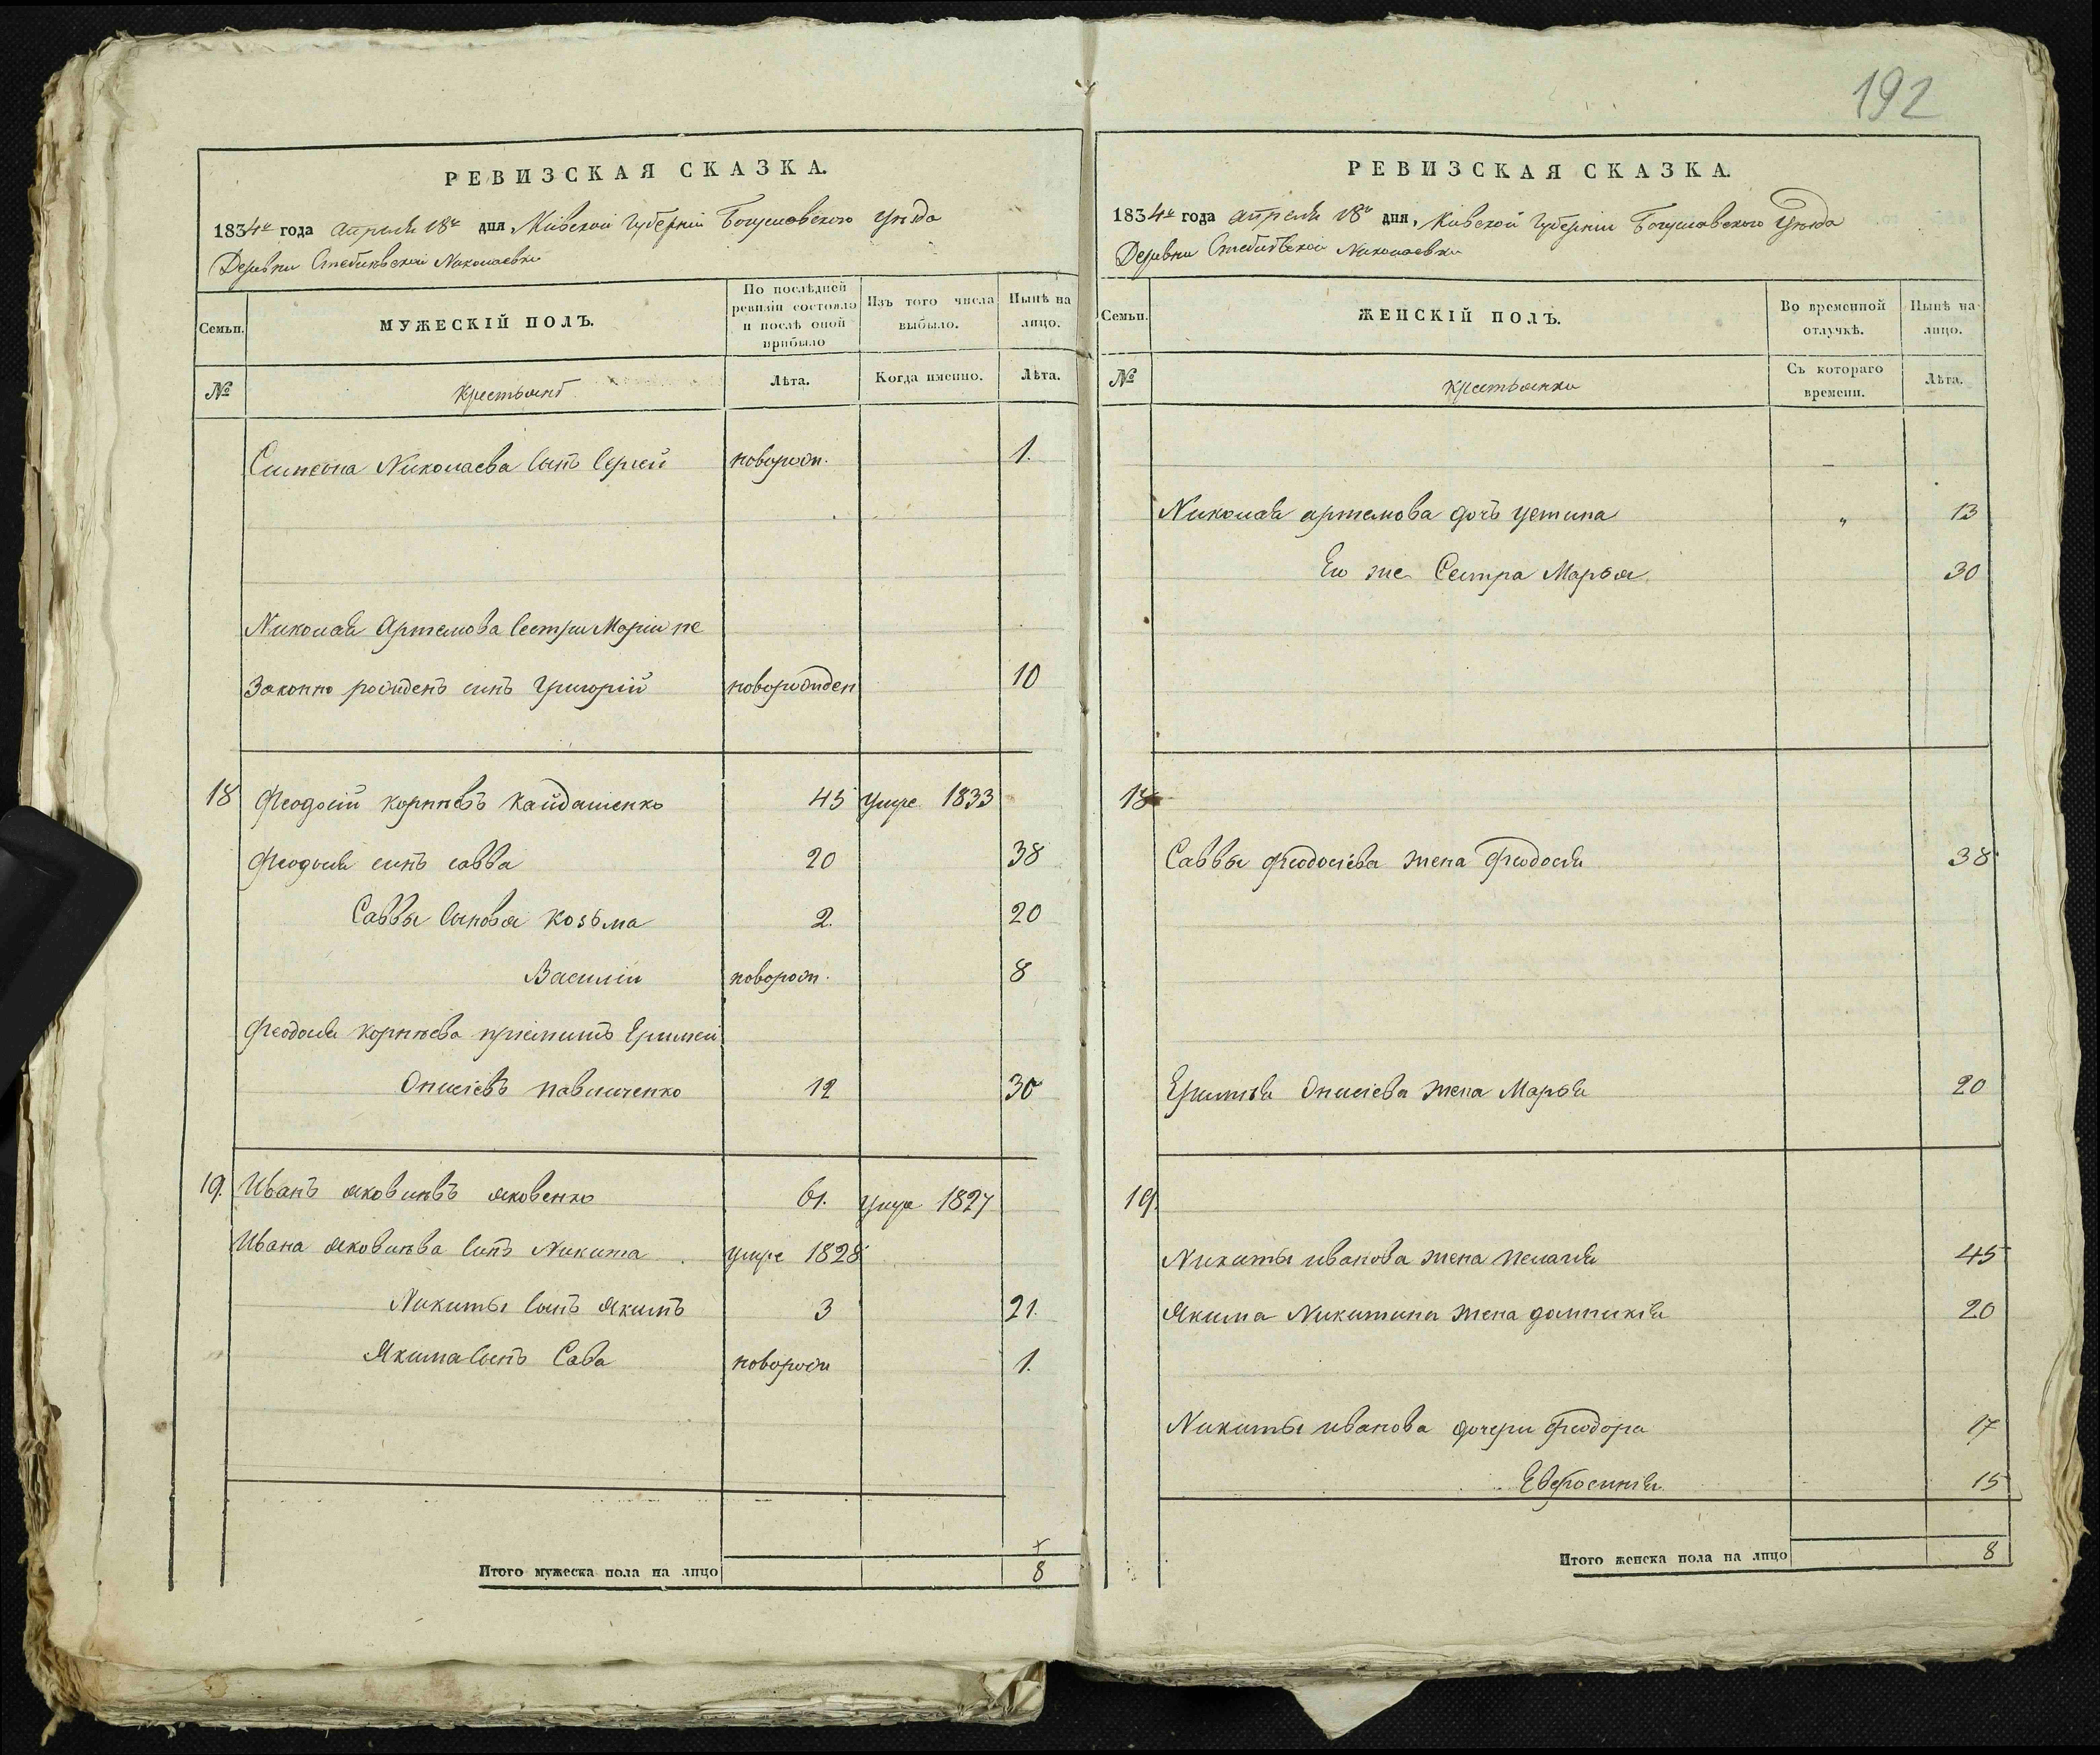 192
РЕВИЗСКАЯ СКАЗКА.
1834го года апреля 18го дня, Кіевской Губерніи Богуславского уѣзда
Деревни Стеблѣвской Николаевки
Семьи.
МУЖЕСКІЙ ПОЛЪ.
По послѣдней ревизіи состояло и послѣ оной прибыло
Изъ того числа выбыло.
Нынѣ на лицо.
№ Крестьянѣ Лѣта. Когда именно. Лѣта.
Симеона Николаева сынъ Сергей новорож. 1.
Николая Артемова сестры Маріи не
законно рожденъ сынъ Григорій новорожден 10
18 Феодосій Корнѣевъ Кайдашенко 45 умре 1833
Феодосія сынъ Савва 20 38
Саввы сыновя Козьма 2. 20
Василій новорож. 8
Феодосія Корнѣева пріемышъ Еримей
Онисіевъ Павличенко 12 30
19. Иванъ Яковлевъ Яковенко 61. умре 1827
Ивана Яковлева сынъ Никита умре 1828
Никиты сынъ Якимъ 3 21.
Якима сынъ Сава новорож 1.
Итого мужеска пола на лицо 8
РЕВИЗСКАЯ СКАЗКА.
1834го года апреля 18го дня, Кіевской Губерніи Богуславского уѣзда
Деревни Стеблѣвской Николаевки
Семьи.
ЖЕНСКІЙ ПОЛЪ.
Во временной отлучкѣ.
Нынѣ на лицо.
№ Крестьянки Съ котораго времени. Лѣта.
Николая Артемова дочь Устина " 13
Его же Сестра Марья 30
18
Саввы Феодосіева жена Феодосія 38
Еримѣя Онисіева жена Марья 20
19.
Никиты Иванова жена Пелагія 45
Якима Никитина жена Домникія 20
Никиты Иванова дочери Феодора 17
Евфросинія 15
Итого женска пола на лицо 8